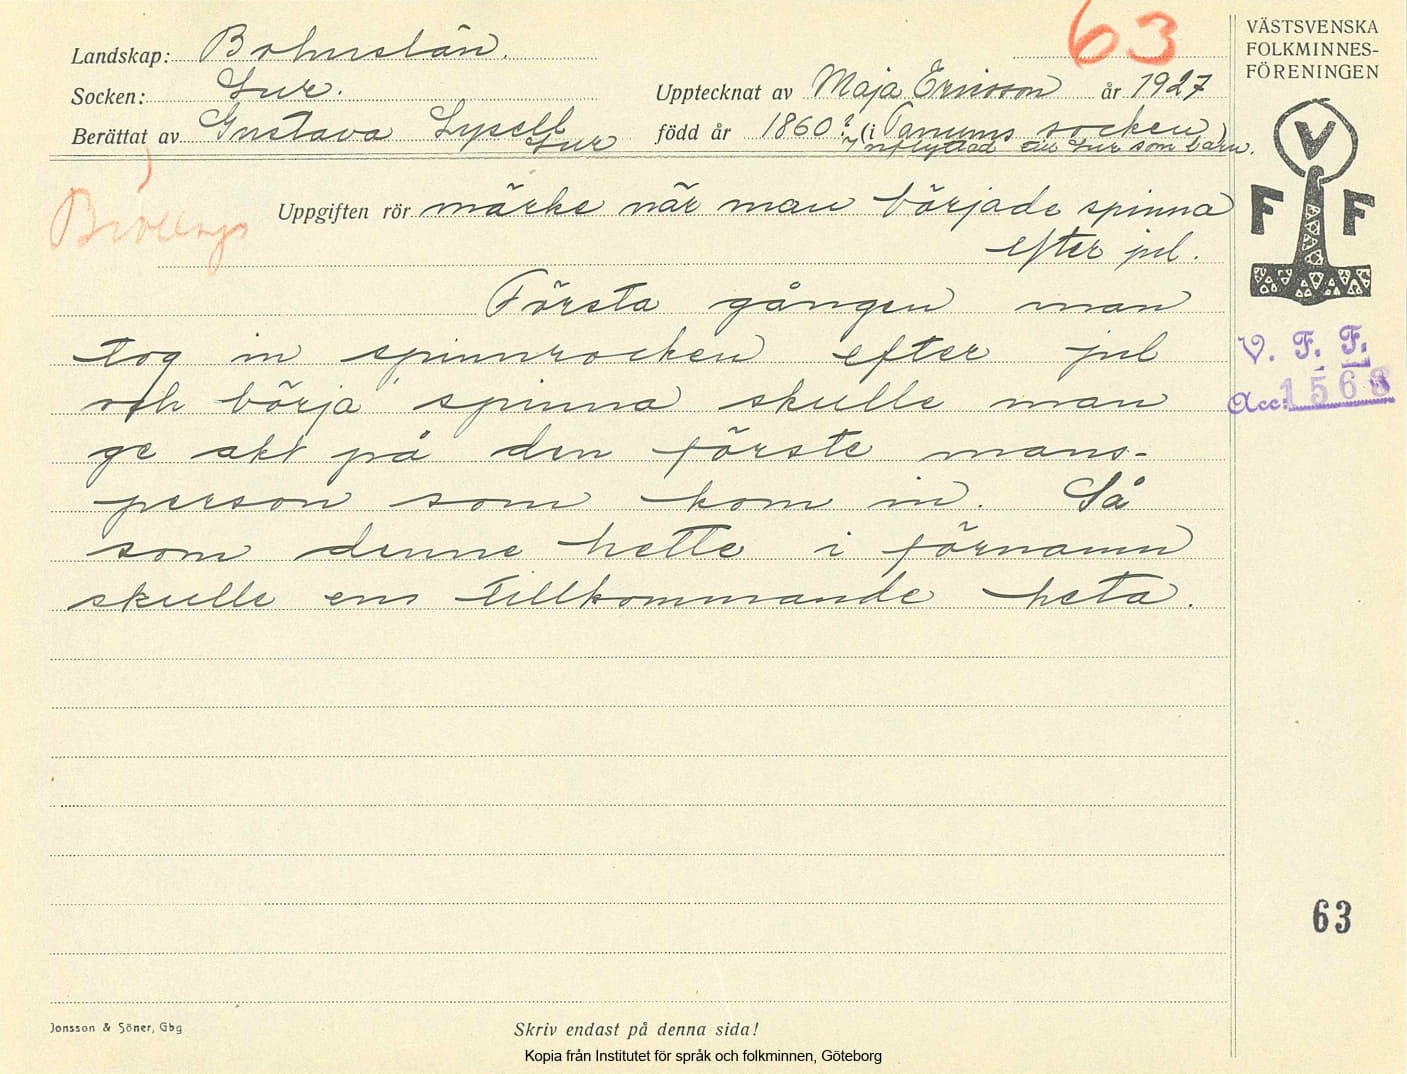 63
VÄSTSVENSKA
FOLKMINNES-
FÖRENINGEN
Landskap: Bohuslän.
Socken: Lur.
Upptecknat av Maja Ericsson år 1927
Berättat av Gustava Lysell
Lur
född år 1860? (i Tanums socken)
Inflyttad till Lur som barn.
Bröllop
Uppgiften rör märke när man började spinna
efter jul.
V
F F
Första gången man
tog in spinnrocken efter jul
och börja spinna skulle man
ge akt på den förste mans-
person som kom in. Så
som denne hette i förnamn
skulle ens tillkommande heta.
V. F. F.
Acc: 1568
63
Jonsson & Söner, Gbg
Skriv endast på denna sida!
Kopia från Institutet för språk och folkminnen, Göteborg